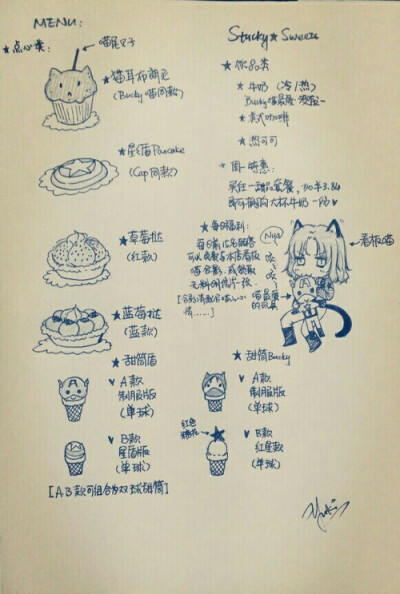 MENU:
★点心类:
喵尾叉子
★猫耳布朗尼
(Bucky喵同款)
★星盾Pancake
(Cap同款)
★草莓挞
(红款)
★蓝莓挞
(蓝款)
★甜筒盾
♥ A款
制服版
(单球)
♥ B款
星盾版
(单球)
[A.B款可组合为双球甜筒]
Stucky★Sweets
★饮品类
★牛奶(冷/热)
Bucky喵最爱
★美式咖啡
★热可可
★周一特惠:
买任一甜品套餐, 加¥3.84
即可换购大杯牛奶一份♥
★每日福利:
每日前
可以免费与本店看板
喵合影, 或领取
无料明信片一张
Nya
看板喵
喵最爱
的玩具
★甜筒Bucky
♥ A款
制服版
(单球)
红色
糖花
♥ B款
红星款
(单球)